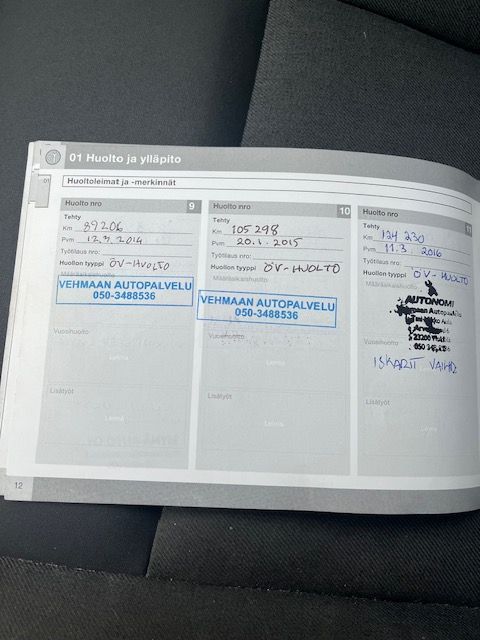 01 Huolto ja ylläpito
01
Huoltoleimat ja -merkinnät
Huolto nro 9
Tehty
Km 89206
Pvm 12.3.2014
Työtilaus nro:
Huollon tyyppi ÖV-HUOLTO
Määräaikaishuolto
VEHMAAN AUTOPALVELU
050-3488536
Vuosihuolto
Leima
Lisätyöt
Leima
Huolto nro 10
Tehty
Km 105298
Pvm 20.1.2015
Työtilaus nro:
Huollon tyyppi ÖV-HUOLTO
Määräaikaishuolto
VEHMAAN AUTOPALVELU
050-3488536
Vuosihuolto
Lisätyöt
Leima
Huolto nro 11
Tehty
Km 124 230
Pvm 11.3.2016
Työtilaus nro:
Huollon tyyppi ÖV-HUOLTO
Määräaikaishuolto
AUTONOMI
23200
050
ISKARIT VAIHD.
Lisätyöt
Leima
12